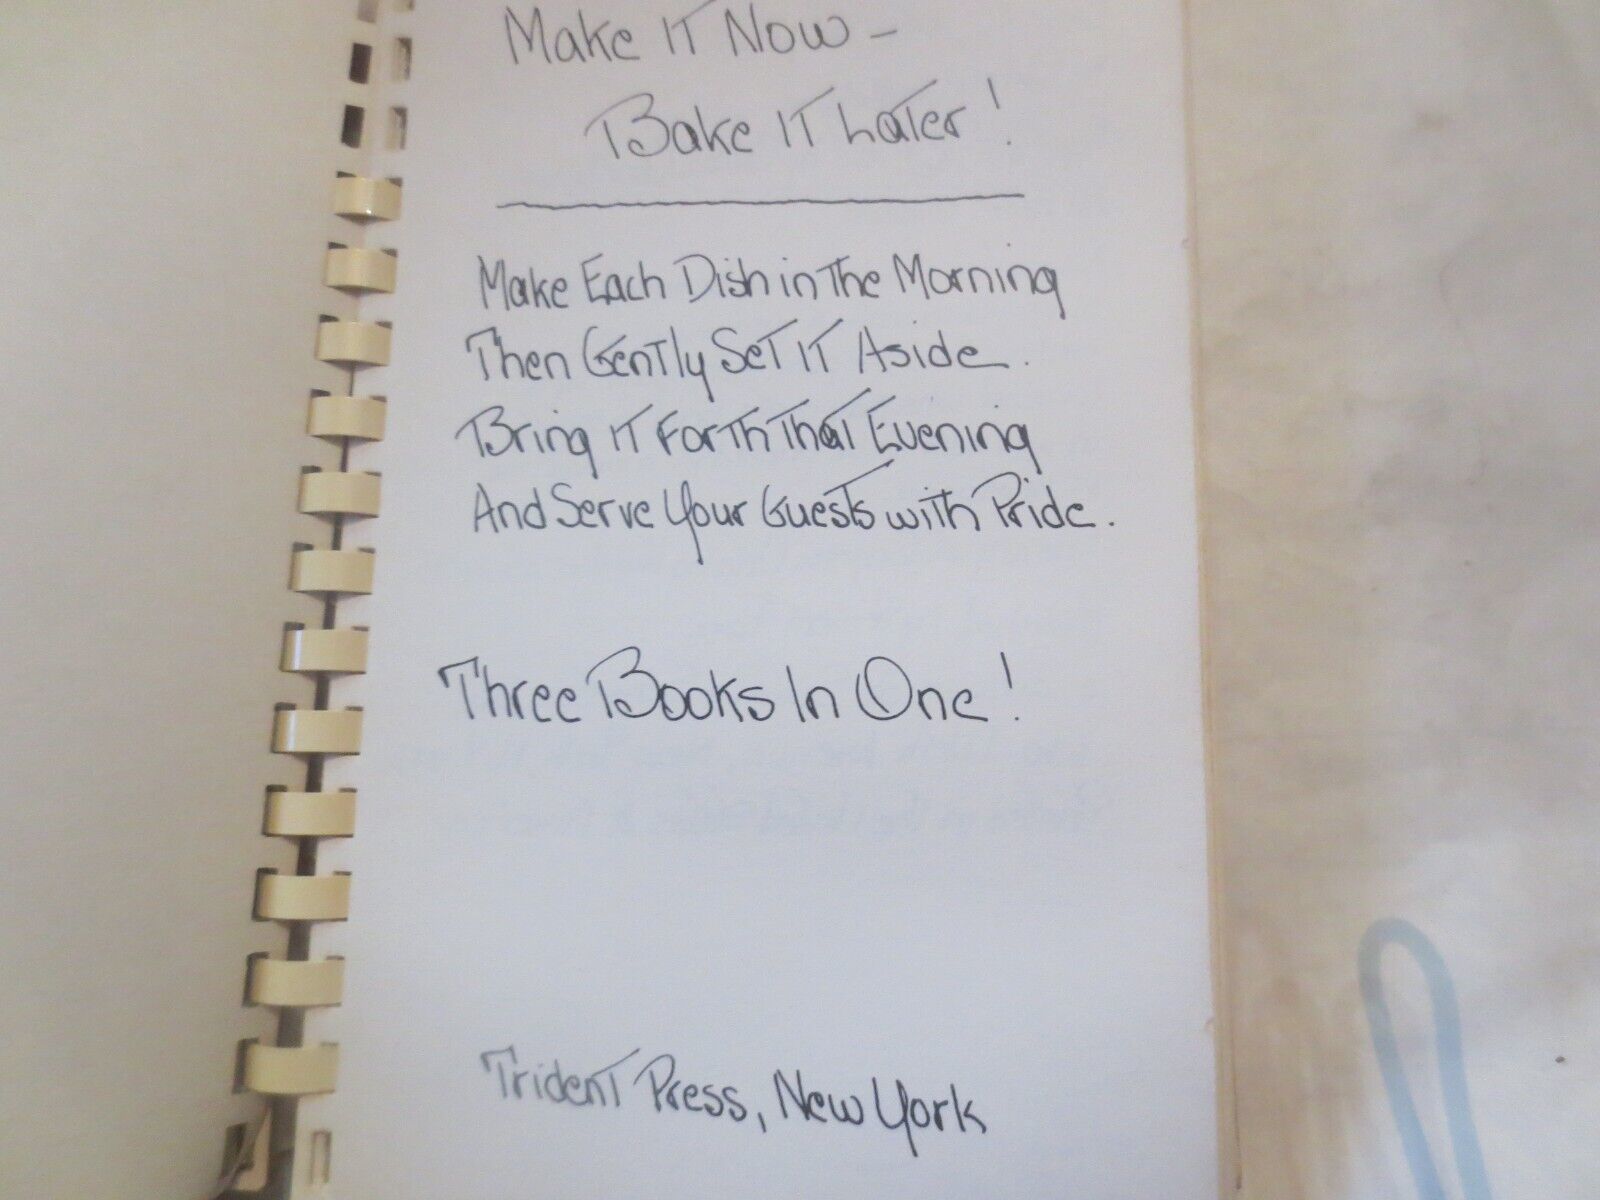 Make It Now -
Bake It Later!
Make Each Dish in The Morning
Then Gently Set It Aside.
Bring It Forth That Evening
And Serve Your Guests with Pride.
Three Books In One!
Trident Press, New York